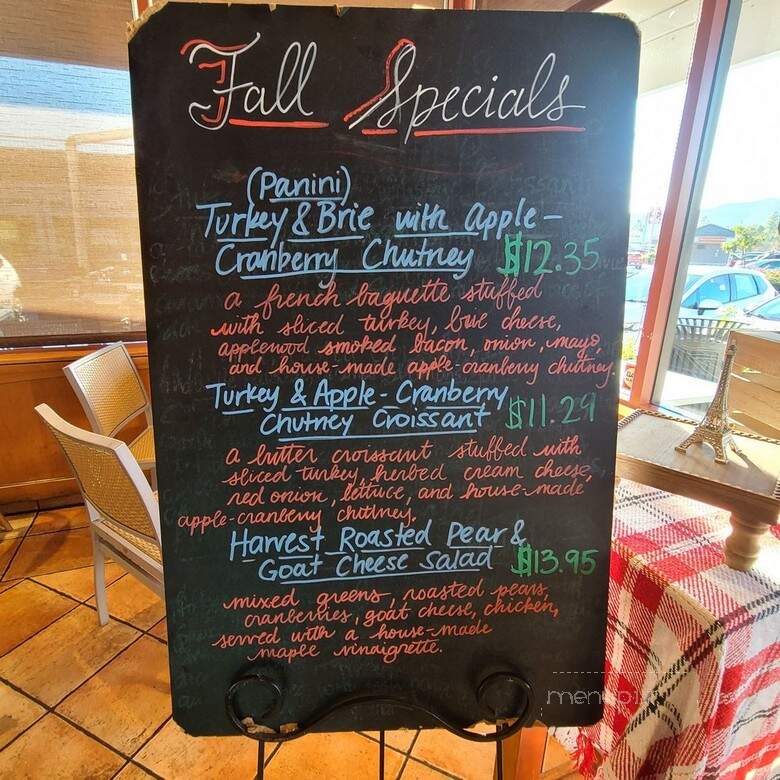 Fall Specials
(Panini)
Turkey & Brie with Apple-
Cranberry Chutney $12.35
a french baguette stuffed
with sliced turkey, brie cheese,
applewood smoked bacon, onion, mayo,
and house-made apple-cranberry chutney.
Turkey & Apple-Cranberry
Chutney Croissant $11.29
a butter croissant stuffed with
sliced turkey, herbed cream cheese,
red onion, lettuce, and house-made
apple-cranberry chutney.
Harvest Roasted Pear &
Goat Cheese Salad $13.95
mixed greens, roasted pears,
cranberries, goat cheese, chicken,
served with a house-made
maple vinaigrette.